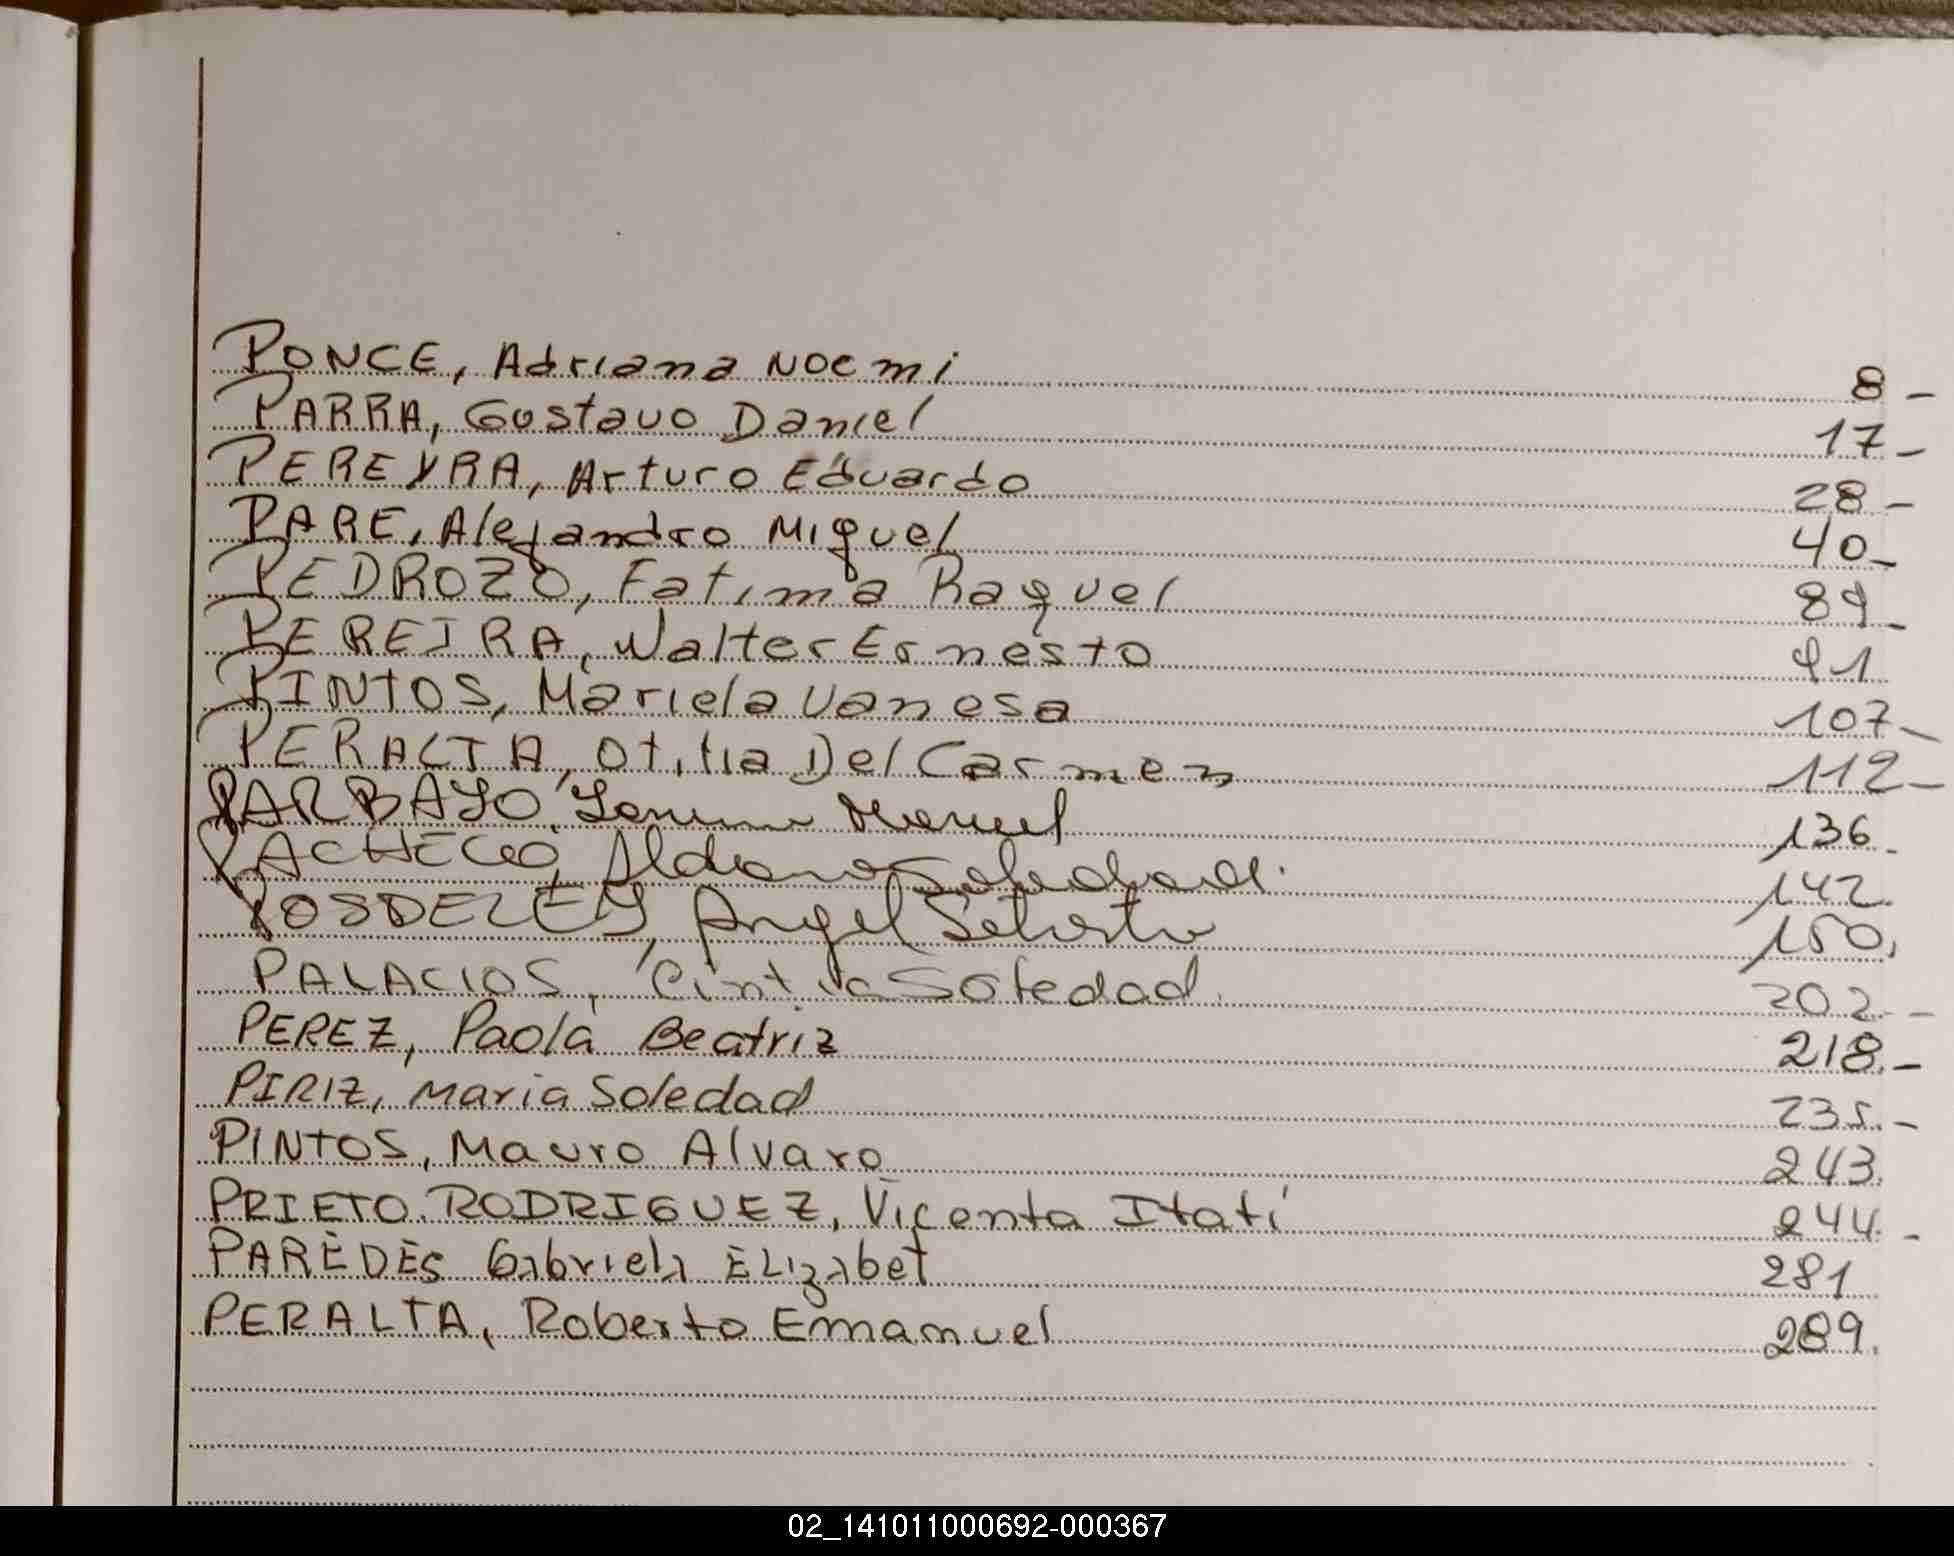 PONCE, Adriana Noemi 8-
PARRA, Gustavo Daniel 17-
PEREYRA, Arturo Eduardo 28-
PARE, Alejandro Miguel 40-
PEDROZO, Fatima Raquel 89-
PEREIRA, Walter Ernesto 91
PINTOS, Mariela Vanesa 107-
PERALTA, Otilia Del Carmen 112-
PARBAYO, Manuel 136-
PACHECO, Aldana Soledad. 142
Angel 150,
PALACIOS, Cintia Soledad. 202-
PEREZ, Paola Beatriz 218.-
PIRIZ, Maria Soledad 235.-
PINTOS, Mauro Alvaro 243.
PRIETO RODRIGUEZ, Vicenta Itatí 244.-
PAREDES Gabriela ELizabet 281
PERALTA, Roberto Emanuel 289.
02_141011000692-000367